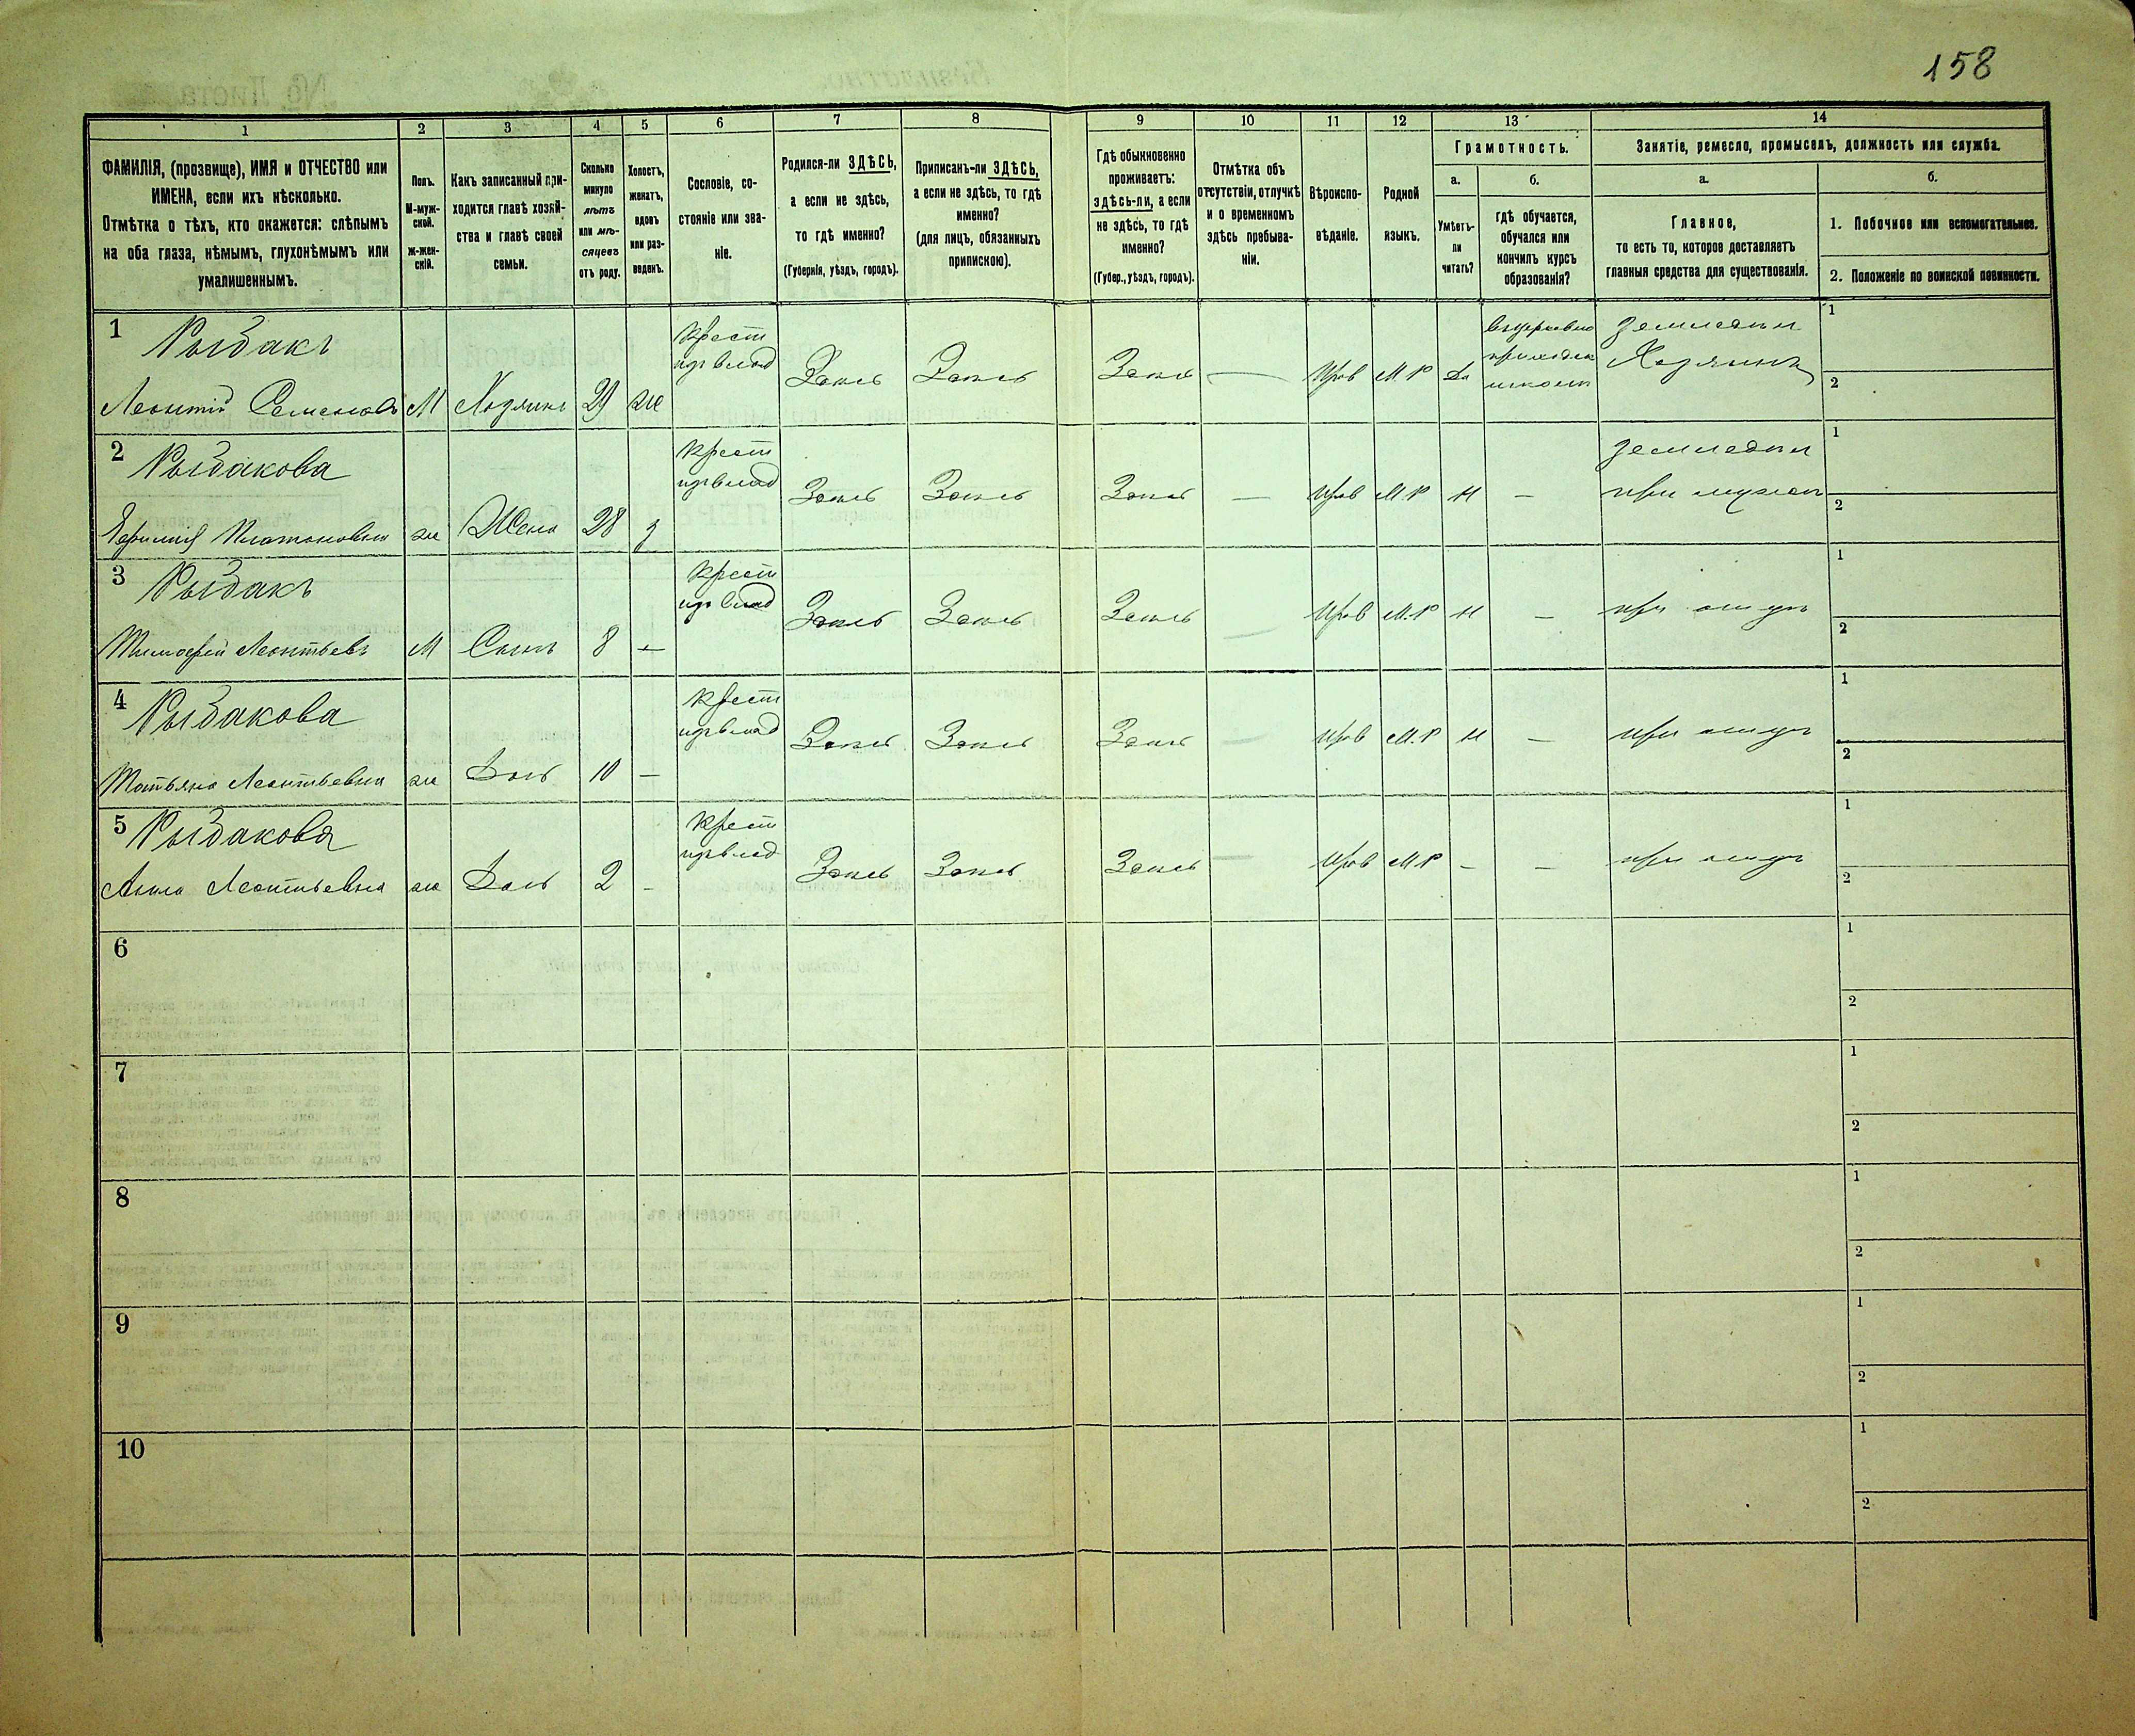 158
1 2 3 4 5 6 7 8 9 10 11 12 13 14
ФАМИЛІЯ, (прозвище), ИМЯ и ОТЧЕСТВО или
ИМЕНА, если ихъ нѣсколько.
Отмѣтка о тѣхъ, кто окажется: слѣпымъ
на оба глаза, нѣмымъ, глухонѣмымъ или
умалишеннымъ.
Полъ.
М-муж-
ской.
Ж-жен-
скій.
Какъ записанный при-
ходится главѣ хозяй-
ства и главѣ своей
семьи.
Сколько
минуло
лѣтъ
или мѣ-
сяцевъ
отъ роду.
Холостъ,
женатъ,
вдовъ
или раз-
веденъ.
Сословіе, со-
стояніе или зва-
ніе.
Родился-ли ЗДѢСЬ,
а если не здѣсь,
то гдѣ именно?
(Губернія, уѣздъ, городъ).
Приписанъ-ли ЗДѢСЬ,
а если не здѣсь, то гдѣ
именно?
(для лицъ, обязанныхъ
припискою).
Гдѣ обыкновенно
проживаетъ:
здѣсь-ли, а если
не здѣсь, то гдѣ
именно?
(Губер., уѣздъ, городъ).
Отмѣтка объ
отсутствіи, отлучкѣ
и о временномъ
здѣсь пребыва-
ніи.
Вѣроиспо-
вѣданіе.
Родной
языкъ.
Грамотность.
а.
Умѣетъ-
ли
читать?
б.
гдѣ обучается,
обучался или
кончилъ курсъ
образованія?
Занятіе, ремесло, промыселъ, должность или служба.
а.
Главное,
то есть то, которое доставляетъ
главныя средства для существованія.
б.
1. Побочное или вспомогательное.
2. Положеніе по воинской повинности.
1 Рыбакъ
Леонтій Семеновъ М Хозяинъ 29 ж
Крест
изъ влад
Здѣсь Здѣсь Здѣсь — Прав М.Р Да
приходск
школѣ
земледѣл
Хозяинъ
1
2
2 Рыбакова
Платоновна ж Жена 28 з
Крест
изъ влад
Здѣсь Здѣсь Здѣсь — Прав М.Р Н —
земледѣл
при мужѣ
1
2
3 Рыбакъ
Тимофей Леонтьевъ М Сынъ 8 —
Крест
изъ влад
Здѣсь Здѣсь Здѣсь — Прав М.Р Н —
при отцѣ
1
2
4 Рыбакова
Татьяна Леонтьевна ж Дочь 10 —
Крест
изъ влад
Здѣсь Здѣсь Здѣсь — Прав М.Р Н —
при отцѣ
1
2
5 Рыбакова
Анна Леонтьевна ж Дочь 2 -
Крест
изъ влад
Здѣсь Здѣсь Здѣсь — Прав М.Р - —
при отцѣ
1
2
6
1
2
7
1
2
8
1
2
9
1
2
10
1
2